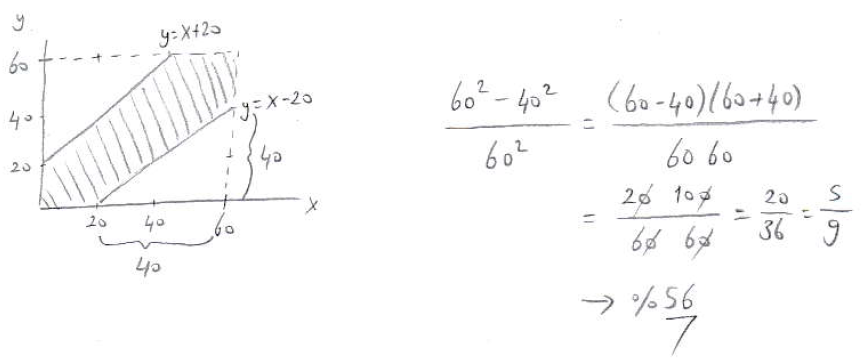 y
y=x+20
60
40
20
y=x-20
40
20 40 60 x
40
60² - 40² / 60² = (60-40)(60+40) / 60 60
= 20 100 / 60 60 = 20/36 = 5/9
→ %56